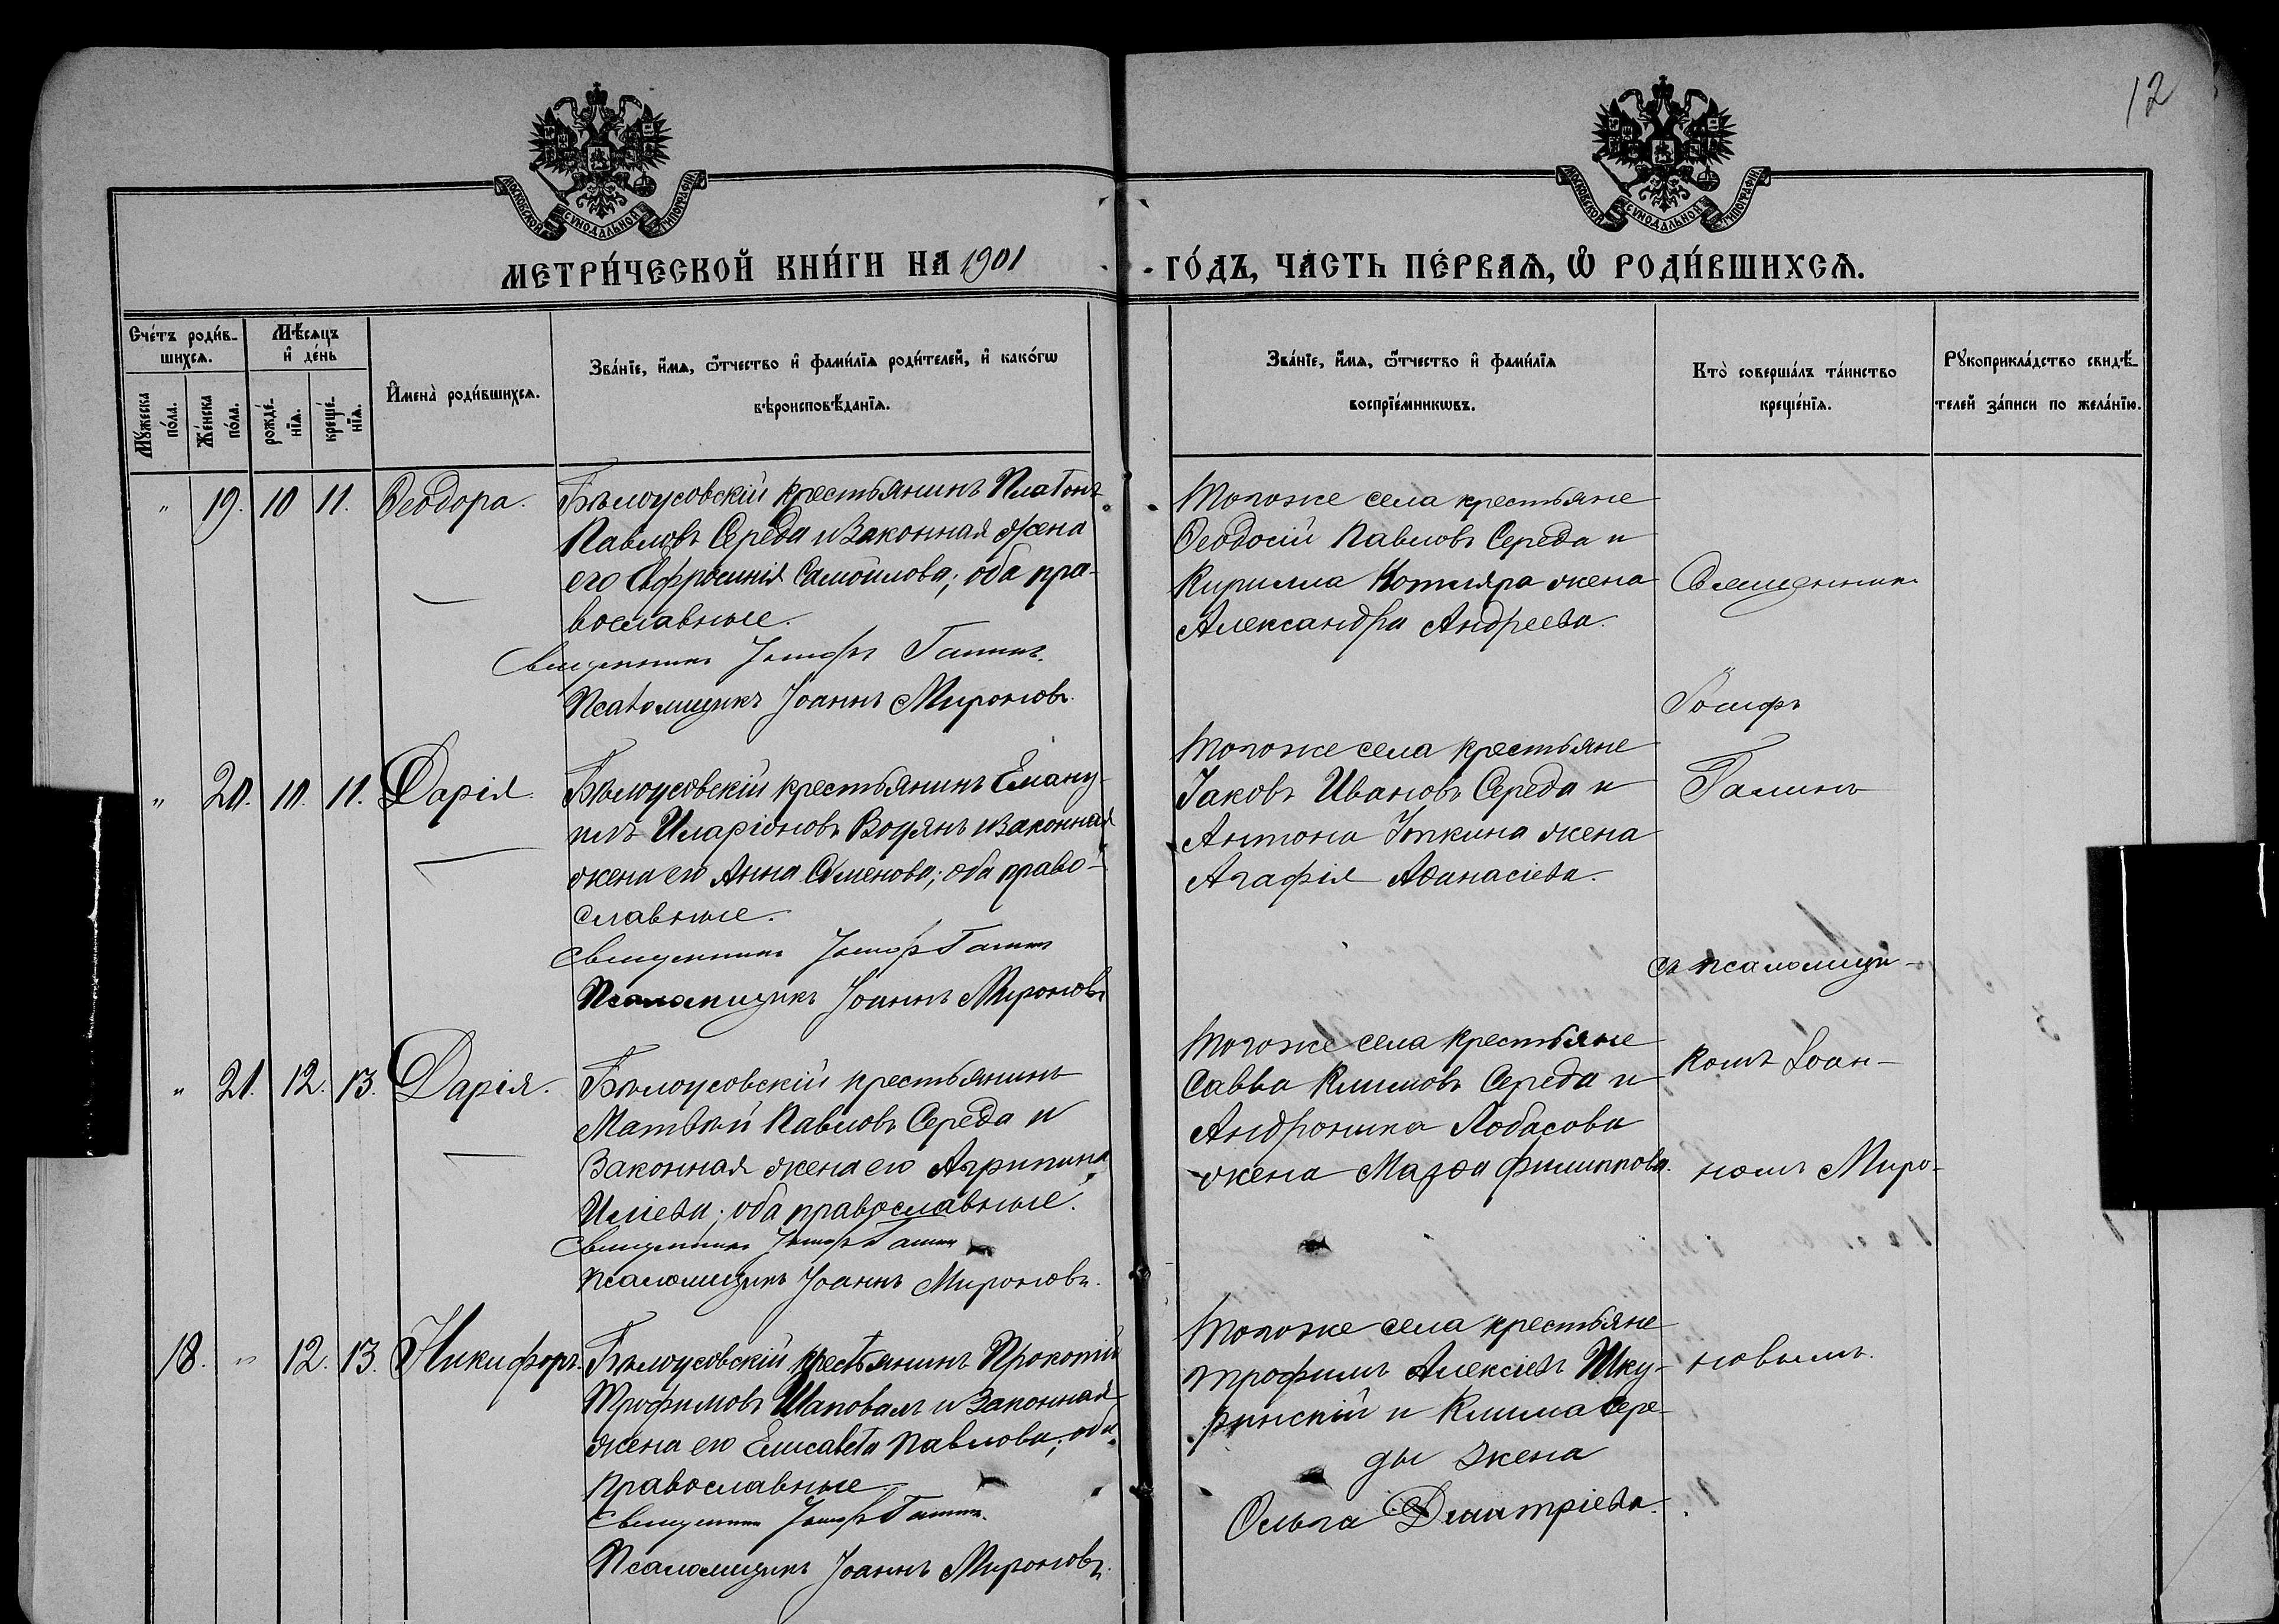 12
МОСКОВСКОЙ СУНОДАЛЬНОЙ ТИПОГРАФІИ
МОСКОВСКОЙ СУНОДАЛЬНОЙ ТИПОГРАФІИ
МЕТРИ́ЧЕСКОЙ КНИ́ГИ НА 1901
ГО́ДЪ, ЧА́СТЬ ПЕ́РВАѦ, Ѡ҆ РОДИ́ВШИХСѦ.
Сче́тъ роди́в-
шихсѧ.
Мꙋ́жеска по́ла.
Же́нска по́ла.
Мѣ́сѧцъ
и҆ де́нь
рожде́-
нїѧ.
креще́-
нїѧ.
И҆мена̀ роди́вшихсѧ.
Зва́нїе, и҆́мѧ, ѻ҆́тчество и҆ фами́лїѧ роди́телей, и҆ како́гѡ
вѣроисповѣ́данїѧ.
Зва́нїе, и҆́мѧ, ѻ҆́тчество и҆ фами́лїѧ
воспрїе́мникѡвъ.
Кто̀ соверша́лъ та́инство
креще́нїѧ.
Рꙋкоприкла́дство свидѣ́-
телей за́писи по жела́нїю.
" 19. 10 11. Ѳеодора.
Бѣлоусовскій крестьянинъ Платонъ
Павловъ Середа и законная жена
его Евфросинія Самойлова; оба пра-
вославные.
Священникъ Іосифъ Галинъ.
Псаломщикъ Іоаннъ Мироновъ.
Тогоже села крестьяне
Ѳеодосій Павловъ Середа и
Кирилла Котляра жена
Александра Андреева.
Священникъ
Іосифъ
Галинъ
съ псаломщи-
комъ Іоан-
номъ Миро-
новымъ.
" 20. 10. 11. Дарія.
Бѣлоусовскій крестьянинъ Еману-
илъ Иларіоновъ Водянъ и законная
жена его Анна Семенова; оба право-
славные.
Священникъ Іосифъ Галинъ
Псаломщикъ Іоаннъ Мироновъ
Тогоже села крестьяне
Іаковъ Ивановъ Середа и
Антона Уткина жена
Агафія Аѳанасіева.
" 21. 12. 13. Дарія.
Бѣлоусовскій крестьянинъ
Матвѣй Павловъ Середа и
законная жена его Агрипина
Иліева; оба православные.
Священникъ Іосифъ Галинъ
Псаломщикъ Іоаннъ Мироновъ.
Тогоже села крестьяне
Савва Климовъ Середа и
Андроника Лобасова
жена Марѳа Филиппова.
18. " 12. 13. Никифоръ.
Бѣлоусовскій крестьянинъ Прокопій
Трофимовъ Шаповалъ и законная
жена его Елисавета Павлова; оба
православные
Священникъ Іосифъ Галинъ.
Псаломщикъ Іоаннъ Мироновъ.
Тогоже села крестьяне
Трофимъ Алексіевъ Шку-
ринскій и Клима Сере-
ды жена
Ольга Димитріева.